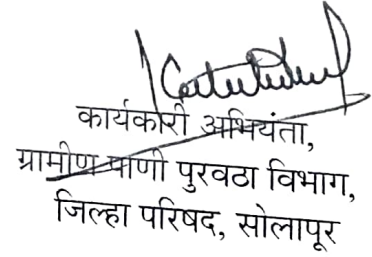 कार्यकारी अभियंता,
ग्रामीण पाणी पुरवठा विभाग,
जिल्हा परिषद, सोलापूर